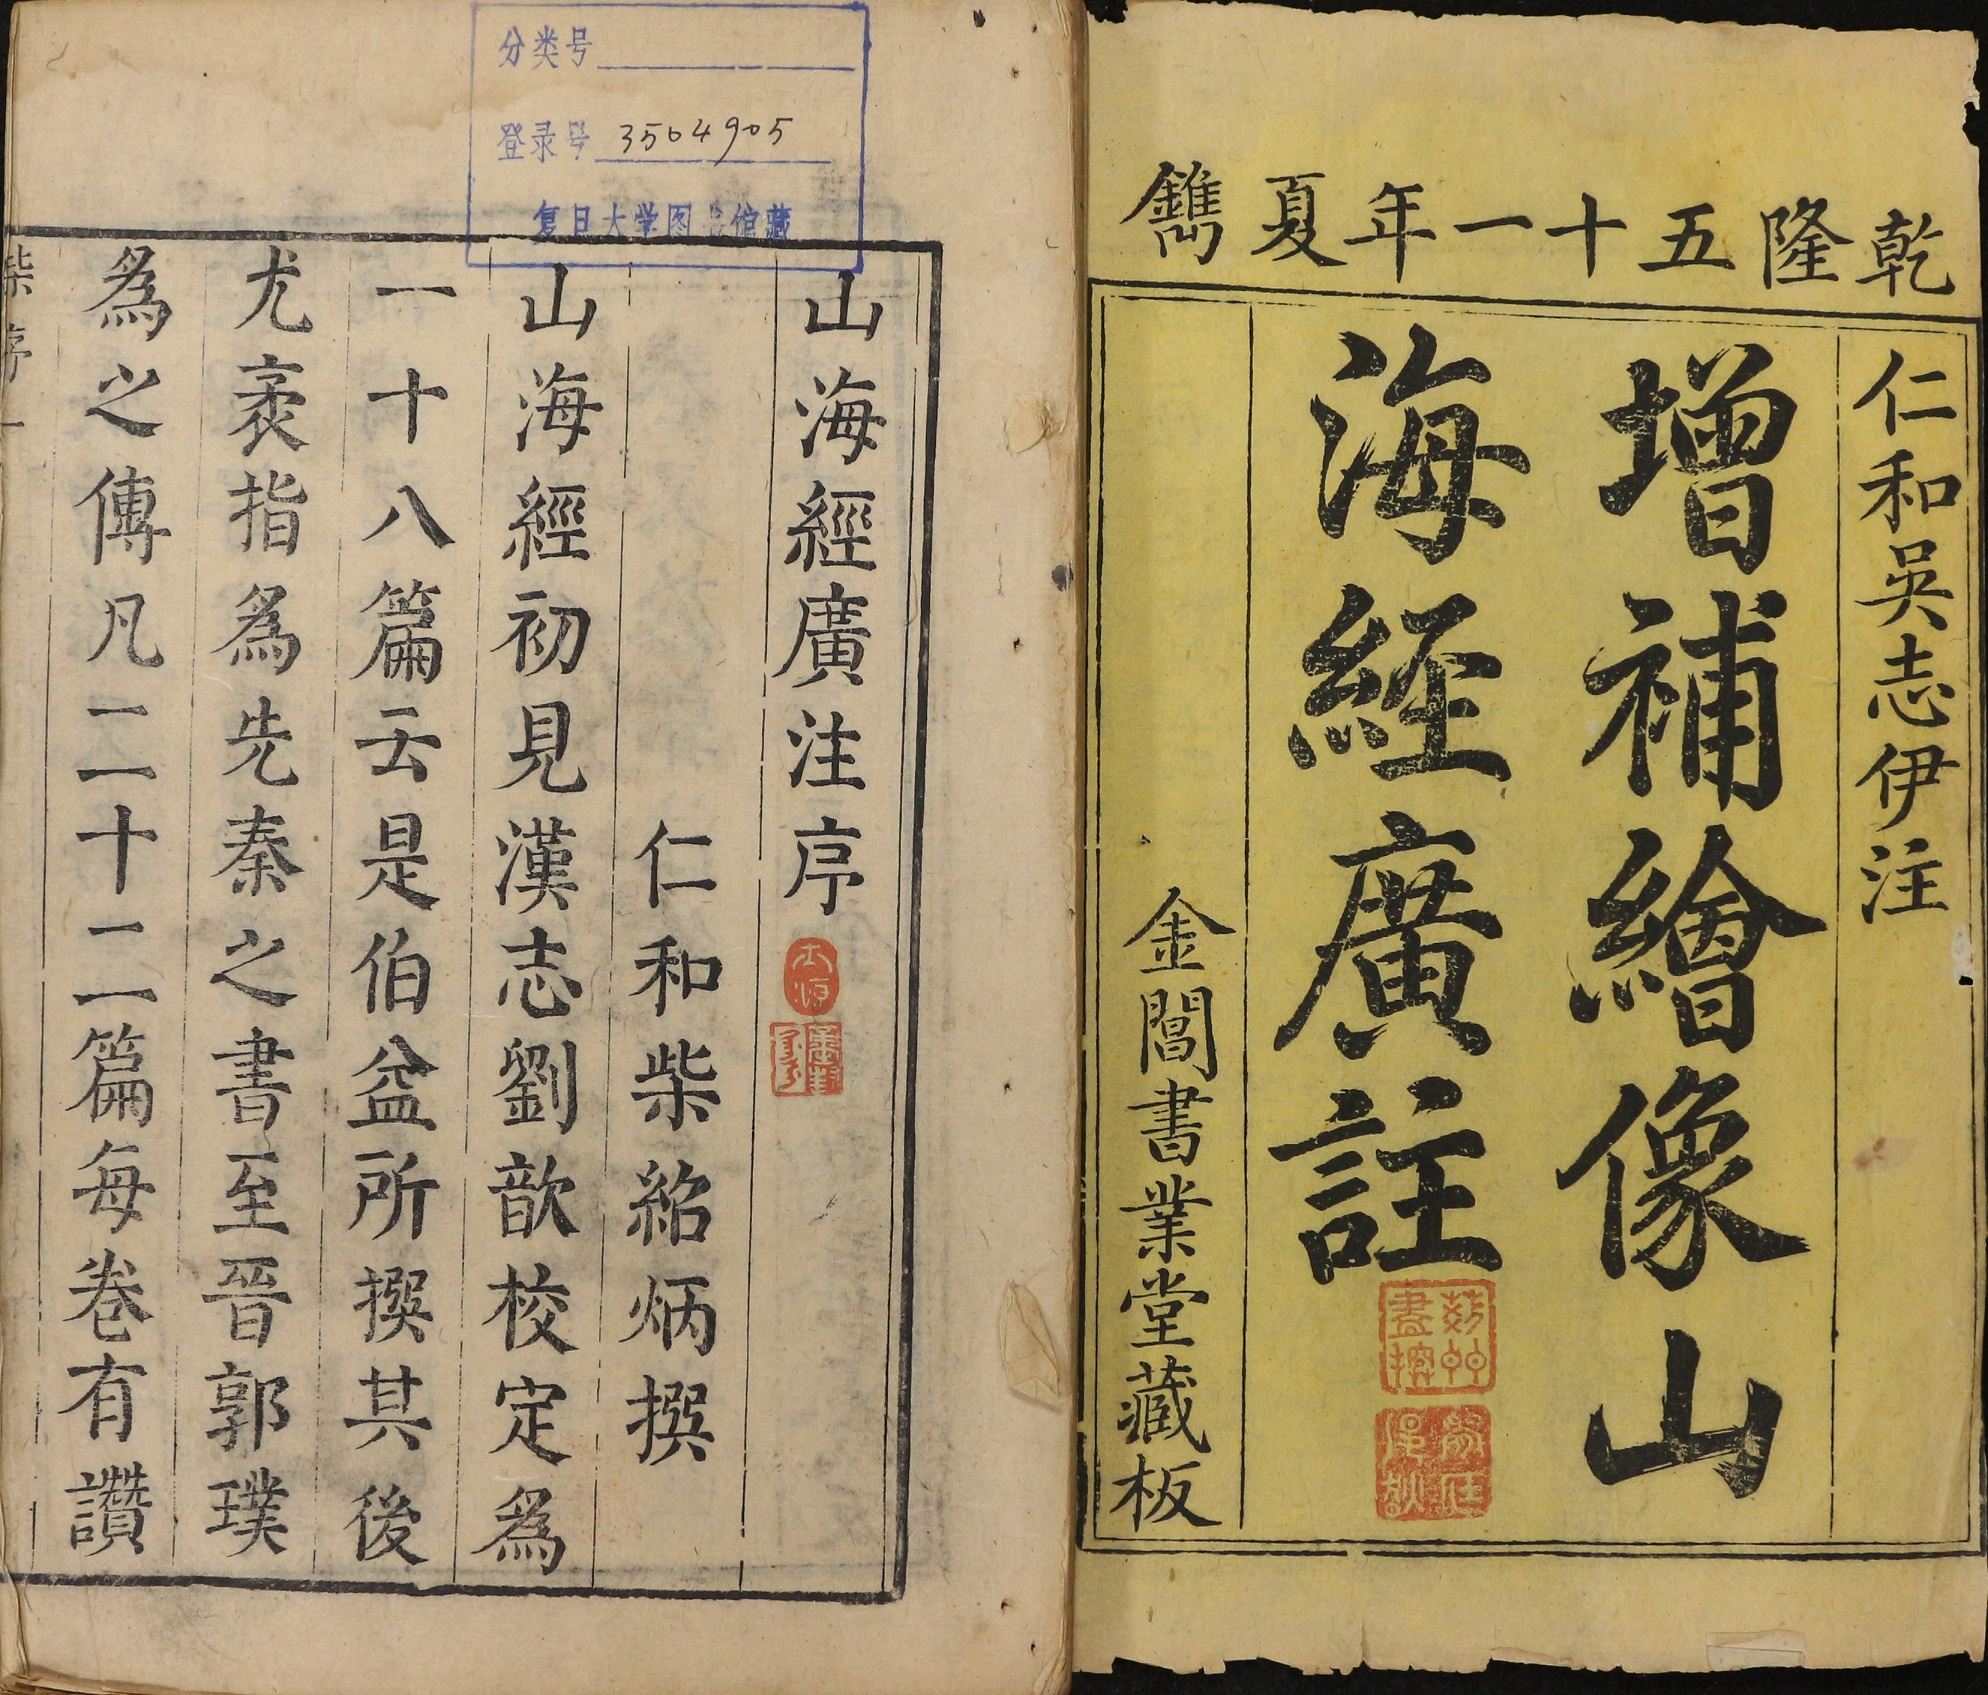 乾隆五十一年夏鐫
仁和吳志伊注
增補繪像山
海經廣註
金閶書業堂藏板
分类号
登录号 3504905
复旦大学图书馆藏
山海經廣注序
仁和柴紹炳撰
山海經初見漢志劉歆校定爲
一十八篇云是伯益所撰其後
尤袤指爲先秦之書至晉郭璞
爲之傳凡二十二篇每卷有讚
柴序 一